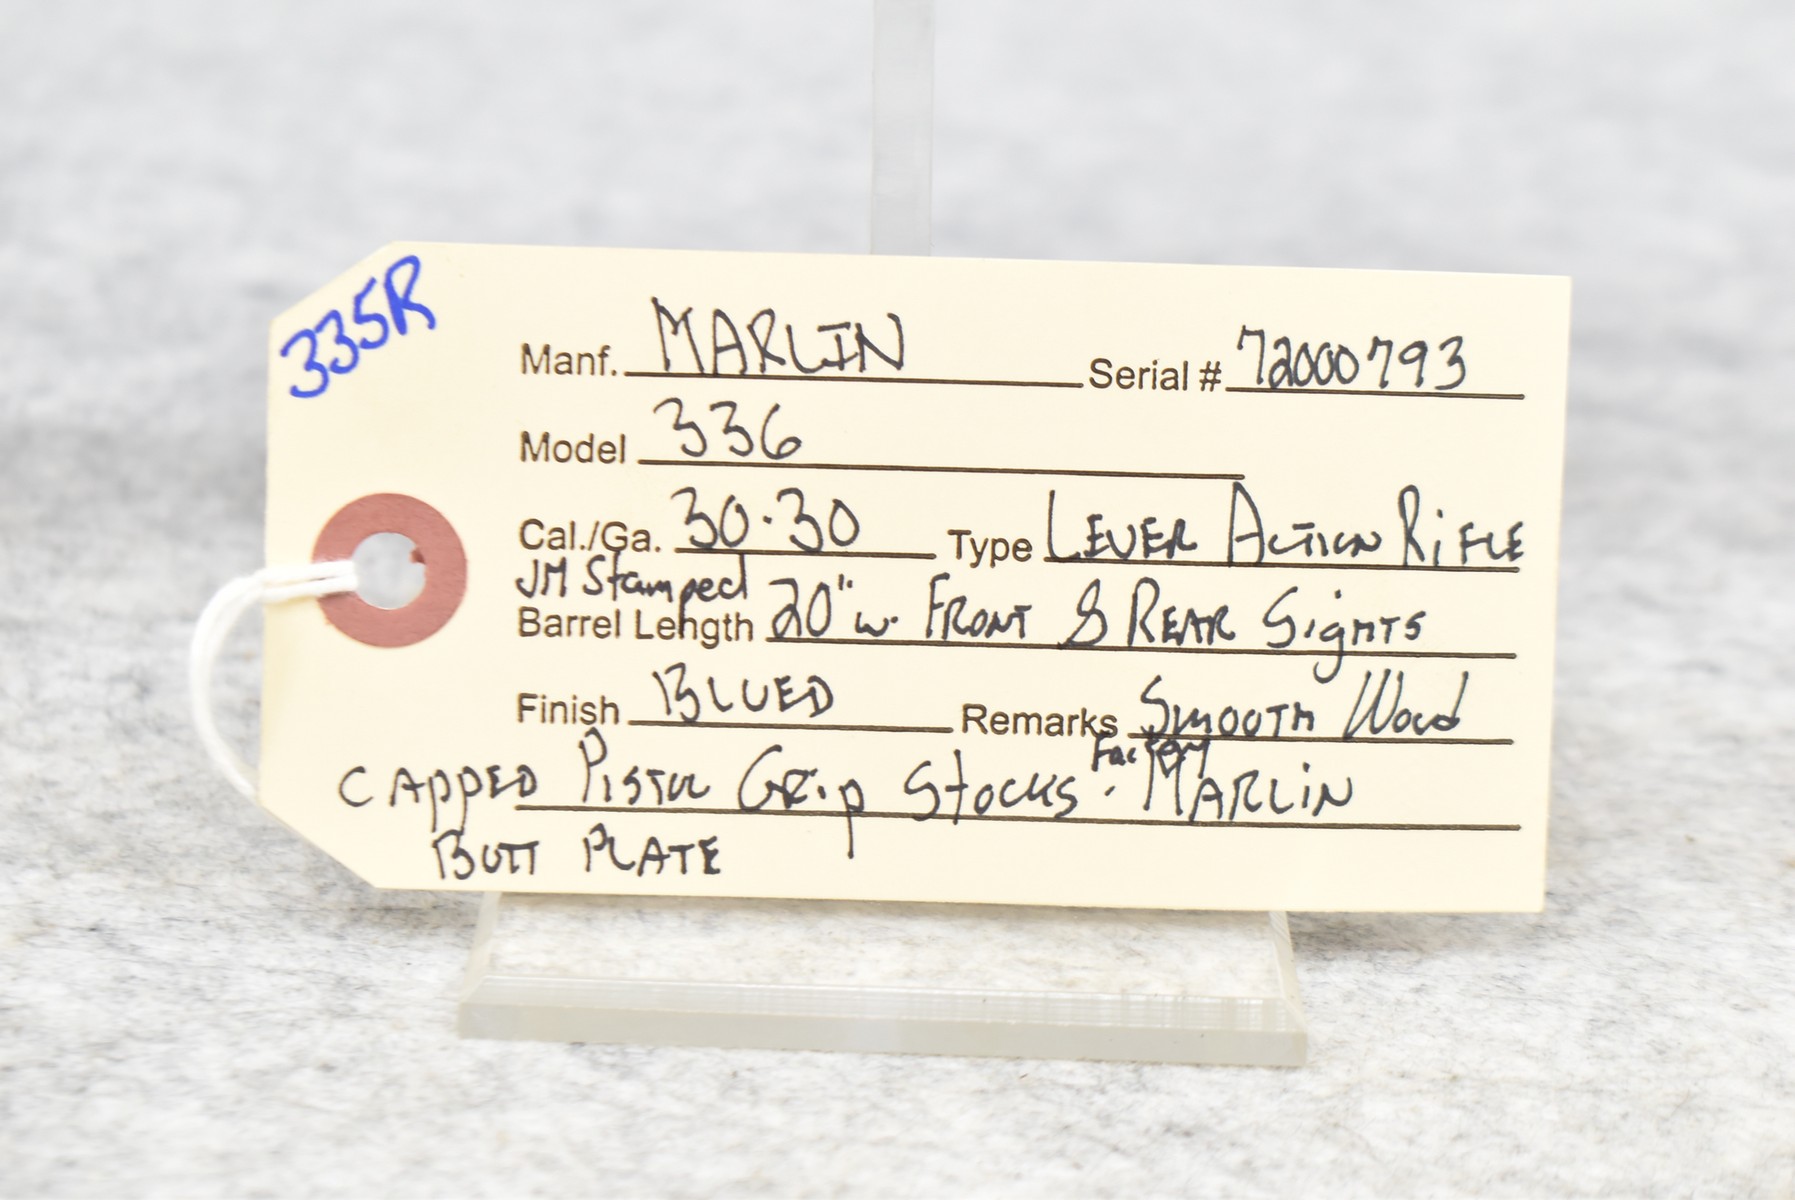 335R
Manf. MARLIN Serial # 72000793
Model 336
Cal./Ga. 30·30 Type LEVER ACTION RiFLE
JM Stamped
Barrel Length 20" w. FRONT & REAR SigHTS
Finish BLUED Remarks SMOOTH Wood
CAPPED PISTOL GRip StOCKS. Factory MARLiN
BUTT PLATE